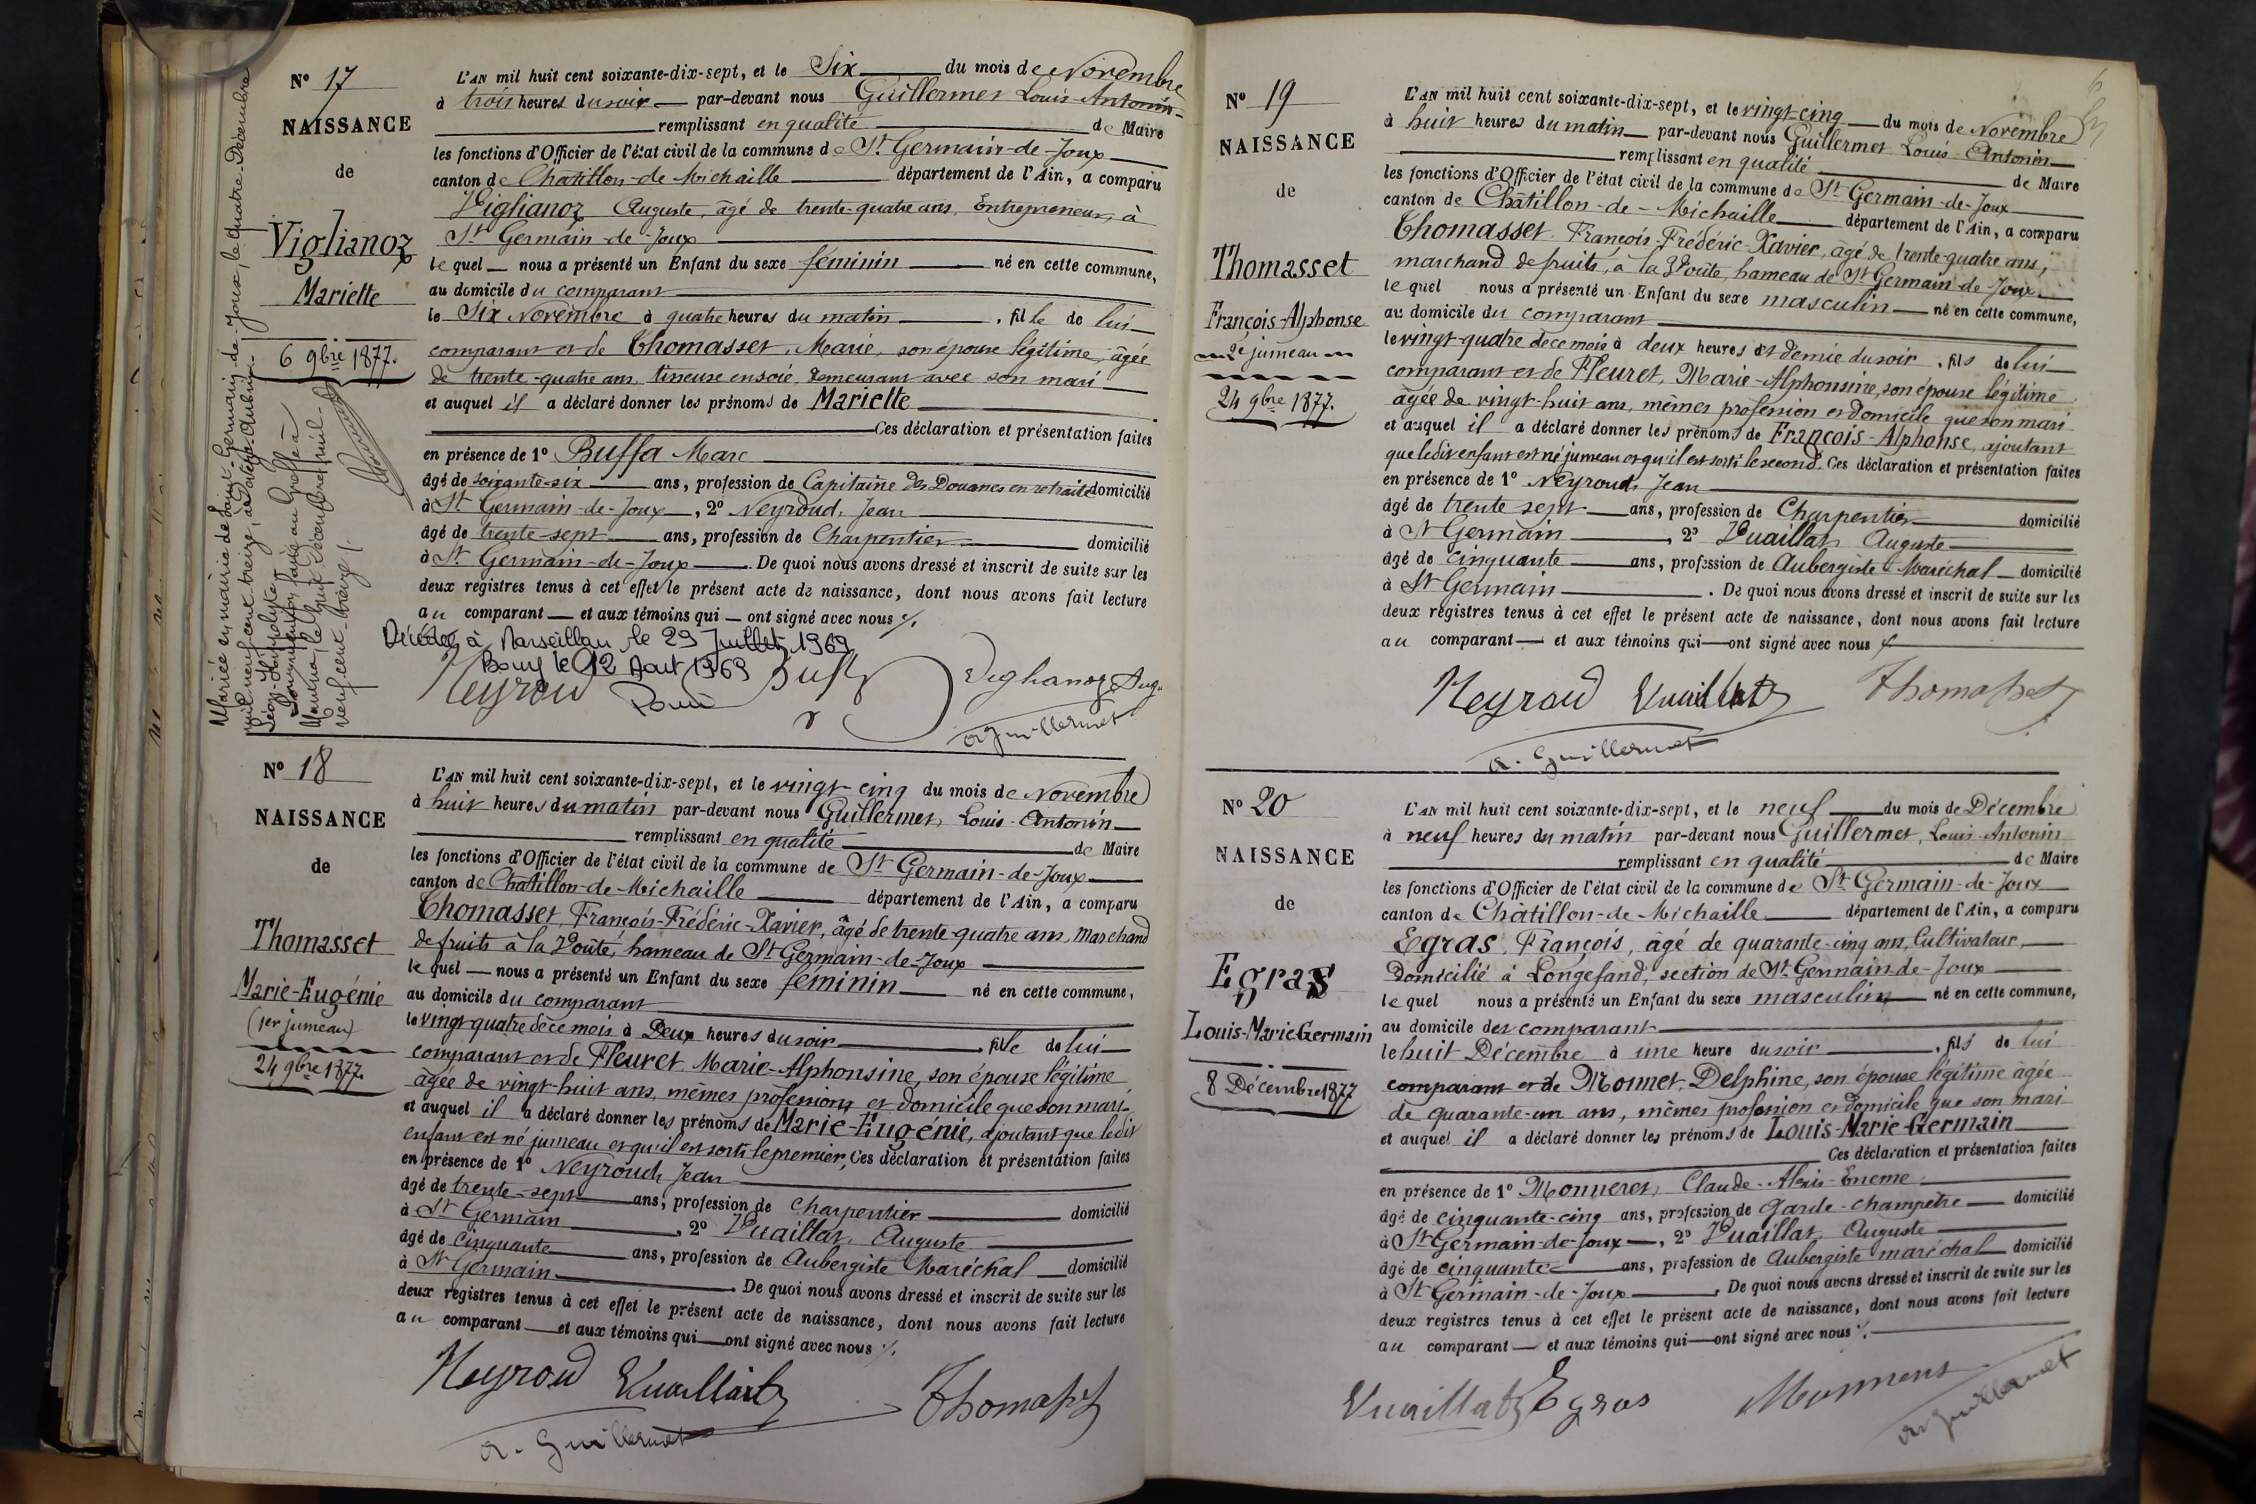 N° 17
NAISSANCE
de
Viglianoz
Mariette
6 9bre 1877.
L'AN mil huit cent soixante-dix-sept, et le Six du mois de Novembre
à trois heures du soir par-devant nous Guillermet Louis-Antonin
remplissant en qualité de Maire
les fonctions d'Officier de l'état civil de la commune de St Germain-de-Joux
canton de Chatillon-de-Michaille département de l'Ain, a comparu
Viglianoz Auguste, âgé de trente-quatre ans, Entrepreneur, à
St Germain-de-Joux
le quel nous a présenté un Enfant du sexe féminin né en cette commune,
au domicile du comparant
le Six Novembre à quatre heures du matin, fille de lui
comparant et de Thomasset, Marie, son épouse légitime, âgée
de trente-quatre ans, tisseuse en soie, demeurant avec son mari
et auquel il a déclaré donner les prénoms de Mariette
Ces déclaration et présentation faites
en présence de 1° Buffa Marc
âgé de soixante-six ans, profession de Capitaine des Douanes en retraite domicilié
à St Germain-de-Joux, 2° Neyroud, Jean
âgé de trente-sept ans, profession de Charpentier domicilié
à St Germain-de-Joux. De quoi nous avons dressé et inscrit de suite sur les
deux registres tenus à cet effet le présent acte de naissance, dont nous avons fait lecture
au comparant et aux témoins qui ont signé avec nous ./.
Décédée à Marseillan le 29 Juillet 1969
Bourg le 12 Aout 1969
Neyroud Buffa Viglianoz Aug
A. Guillermet
Mariée en mairie de Saint-Germain-de-Joux, le quatre Décembre
mil neuf cent treize, avec Aubin
Léon-Hippolyte
faite au Greffe à
Nantua, le huit Décembre mil
neuf cent treize ./.
N° 18
NAISSANCE
de
Thomasset
Marie-Eugénie
(1er jumeau)
24 9bre 1877.
L'AN mil huit cent soixante-dix-sept, et le vingt-cinq du mois de Novembre
à huit heures du matin par-devant nous Guillermet, Louis-Antonin
remplissant en qualité de Maire
les fonctions d'Officier de l'état civil de la commune de St Germain-de-Joux
canton de Chatillon-de-Michaille département de l'Ain, a comparu
Thomasset, François-Frédéric-Xavier, âgé de trente-quatre ans, Marchand
de fruits à la Voûte, hameau de St Germain-de-Joux
le quel nous a présenté un Enfant du sexe féminin né en cette commune,
au domicile du comparant
le vingt-quatre de ce mois à Deux heures du soir, fille de lui
comparant et de Fleuret Marie-Alphonsine, son épouse légitime
âgée de vingt-huit ans, mêmes profession et domicile que son mari
et auquel il a déclaré donner les prénoms de Marie-Eugénie, ajoutant que ledit
enfant est né jumeau et qu'il est sorti le premier, Ces déclaration et présentation faites
en présence de 1° Neyroud, Jean
âgé de trente-sept ans, profession de Charpentier domicilié
à St Germain, 2° Vuaillat, Auguste
âgé de cinquante ans, profession de Aubergiste Maréchal domicilié
à St Germain. De quoi nous avons dressé et inscrit de suite sur les
deux registres tenus à cet effet le présent acte de naissance, dont nous avons fait lecture
au comparant et aux témoins qui ont signé avec nous ./.
Neyroud Vuaillat Thomasset
A. Guillermet
N° 19
NAISSANCE
de
Thomasset
François-Alphonse
2e jumeau
24 9bre 1877.
L'AN mil huit cent soixante-dix-sept, et le vingt-cinq du mois de Novembre
à huit heures du matin par-devant nous Guillermet Louis-Antonin
remplissant en qualité de Maire
les fonctions d'Officier de l'état civil de la commune de St Germain-de-Joux
canton de Châtillon-de-Michaille département de l'Ain, a comparu
Thomasset François-Frédéric-Xavier, âgé de trente-quatre ans,
marchand de fruits, à la Voûte, hameau de St Germain-de-Joux
le quel nous a présenté un Enfant du sexe masculin né en cette commune,
au domicile du comparant
le vingt-quatre de ce mois à deux heures et demie du soir, fils de lui
comparant et de Fleuret, Marie-Alphonsine, son épouse légitime
âgée de vingt-huit ans, mêmes profession et domicile que son mari
et auquel il a déclaré donner les prénoms de François-Alphonse, ajoutant
que ledit enfant est né jumeau et qu'il est sorti le second. Ces déclaration et présentation faites
en présence de 1° Neyroud, Jean
âgé de trente sept ans, profession de Charpentier domicilié
à St Germain, 2° Vuaillat, Auguste
âgé de cinquante ans, profession de Aubergiste Maréchal domicilié
à St Germain. De quoi nous avons dressé et inscrit de suite sur les
deux registres tenus à cet effet le présent acte de naissance, dont nous avons fait lecture
au comparant et aux témoins qui ont signé avec nous
Neyroud Vuaillat Thomasset
A. Guillermet
N° 20
NAISSANCE
de
Egras
Louis-Marie-Germain
8 Décembre 1877
L'AN mil huit cent soixante-dix-sept, et le neuf du mois de Décembre
à neuf heures du matin par-devant nous Guillermet, Louis-Antonin
remplissant en qualité de Maire
les fonctions d'Officier de l'état civil de la commune de St Germain-de-Joux
canton de Châtillon-de-Michaille département de l'Ain, a comparu
Egras, François, âgé de quarante-cinq ans, Cultivateur,
Domicilié à Longefand, section de St Germain-de-Joux
le quel nous a présenté un Enfant du sexe masculin né en cette commune,
au domicile du comparant
le huit Décembre à une heure du soir, fils de lui
comparant et de Monnet, Delphine, son épouse légitime âgée
de quarante-un ans, mêmes profession et domicile que son mari
et auquel il a déclaré donner les prénoms de Louis-Marie-Germain
Ces déclaration et présentation faites
en présence de 1° Monneret, Claude-Alexis-Eneme
âgé de cinquante-cinq ans, profession de Garde-champêtre domicilié
à St Germain-de-Joux, 2° Vuaillat, Auguste
âgé de cinquante ans, profession de Aubergiste maréchal domicilié
à St Germain-de-Joux. De quoi nous avons dressé et inscrit de suite sur les
deux registres tenus à cet effet le présent acte de naissance, dont nous avons fait lecture
au comparant et aux témoins qui ont signé avec nous ./.
Vuaillat Egras Monneret
A. Guillermet